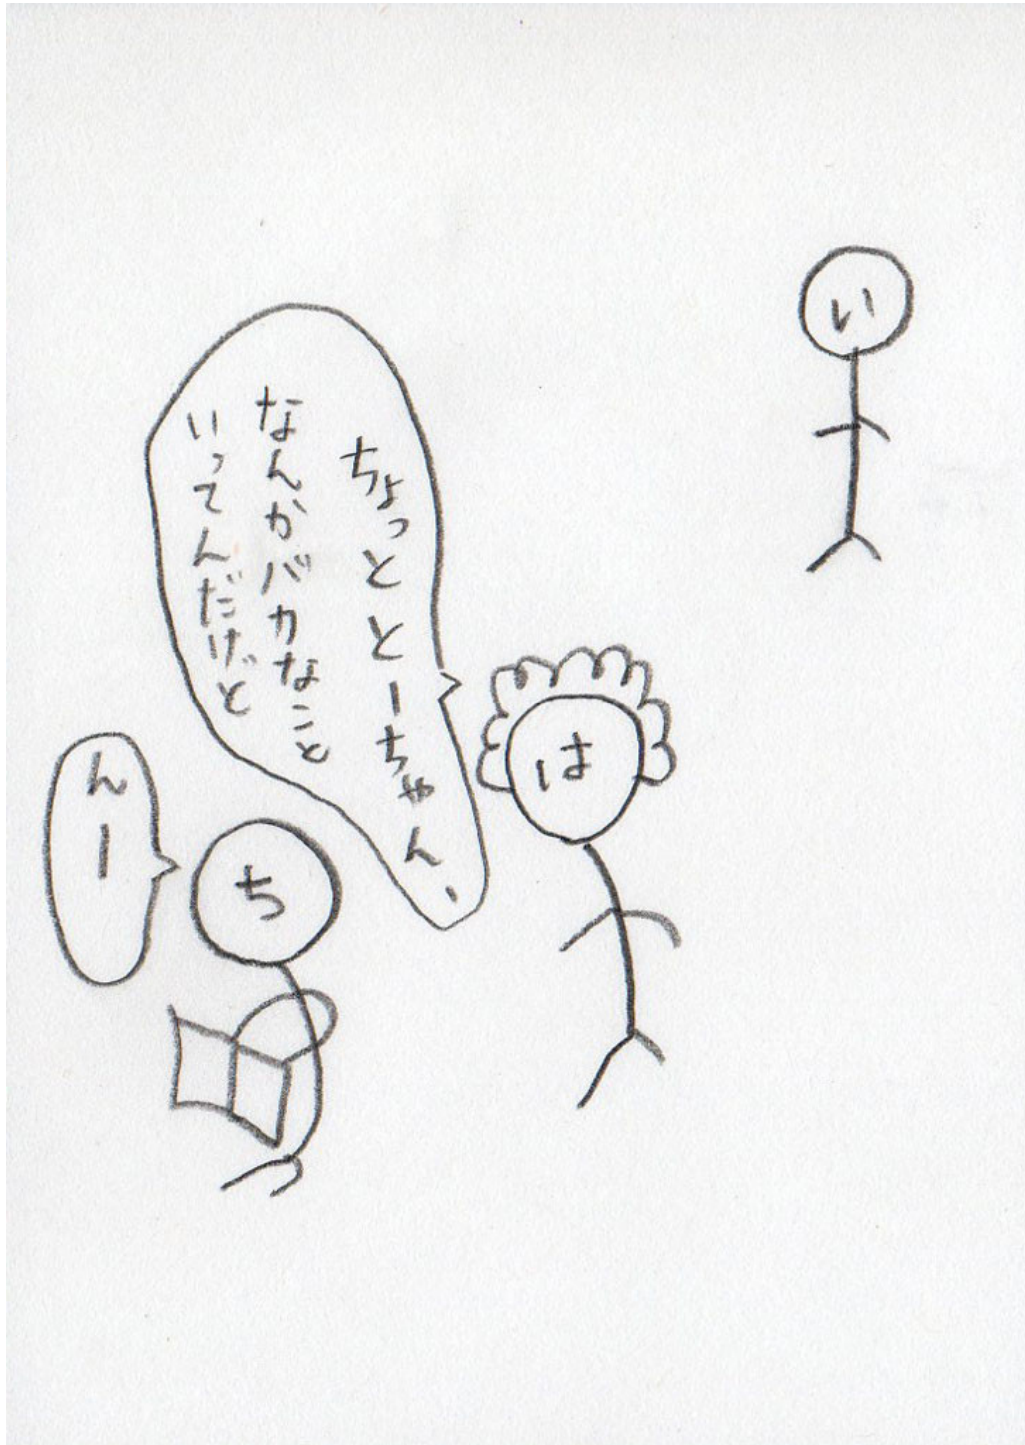 い
は
ちょっととーちゃん、
なんかバカなこと
いってんだけど
ち
んー